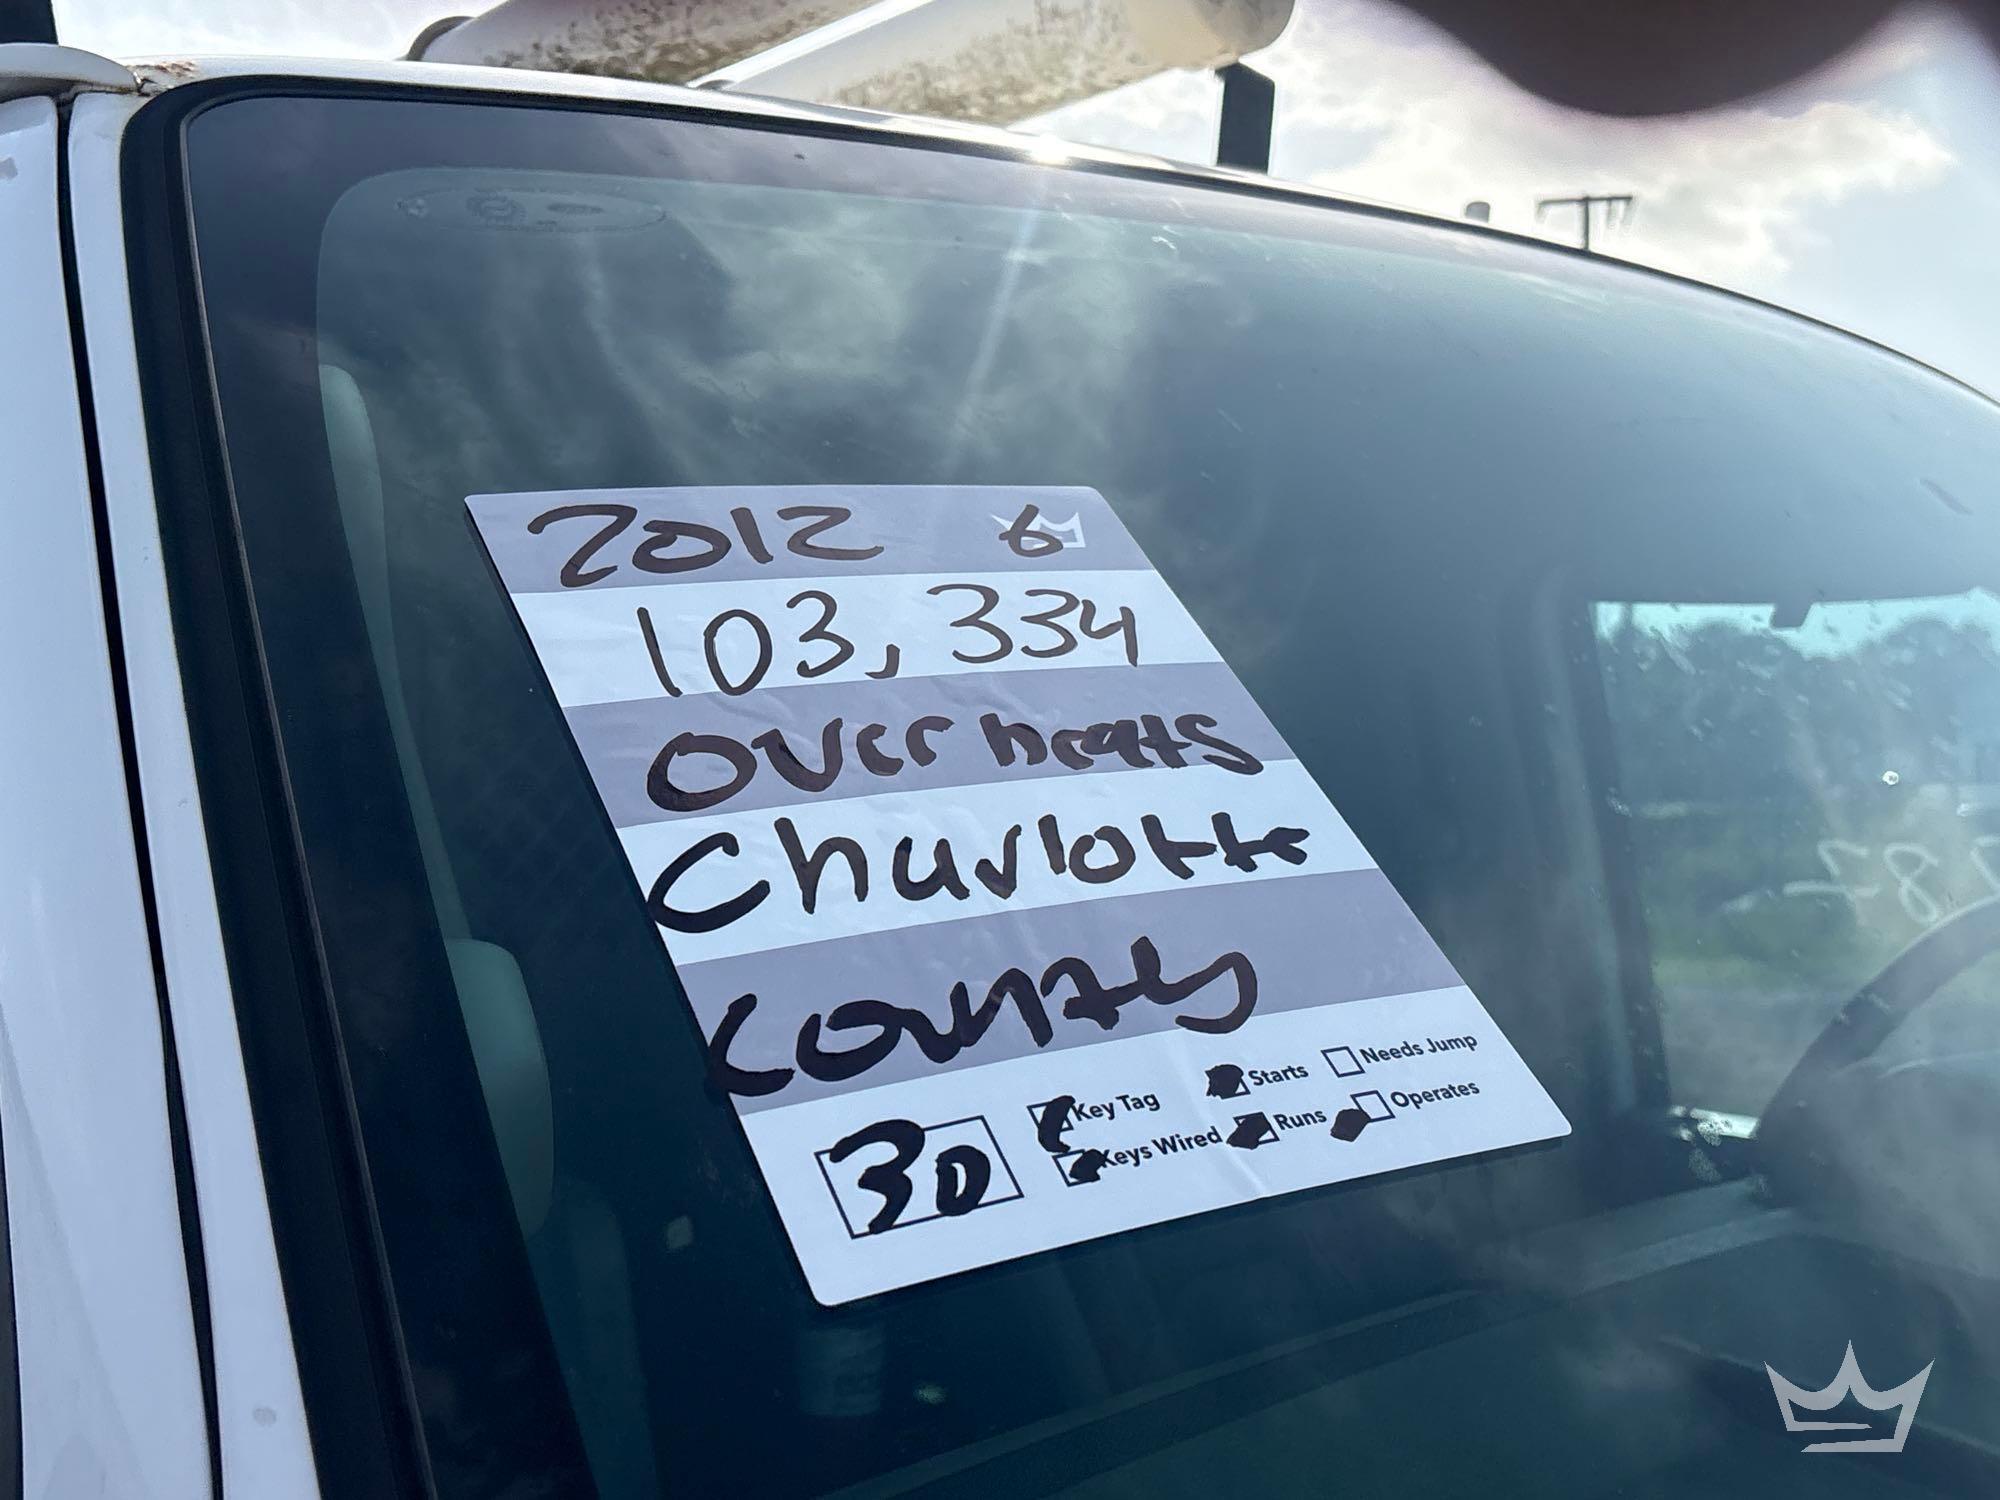 2012 6
103,334
overheats
Charlotte
county
30
Key Tag
Starts
Needs Jump
Keys Wired
Runs
Operates